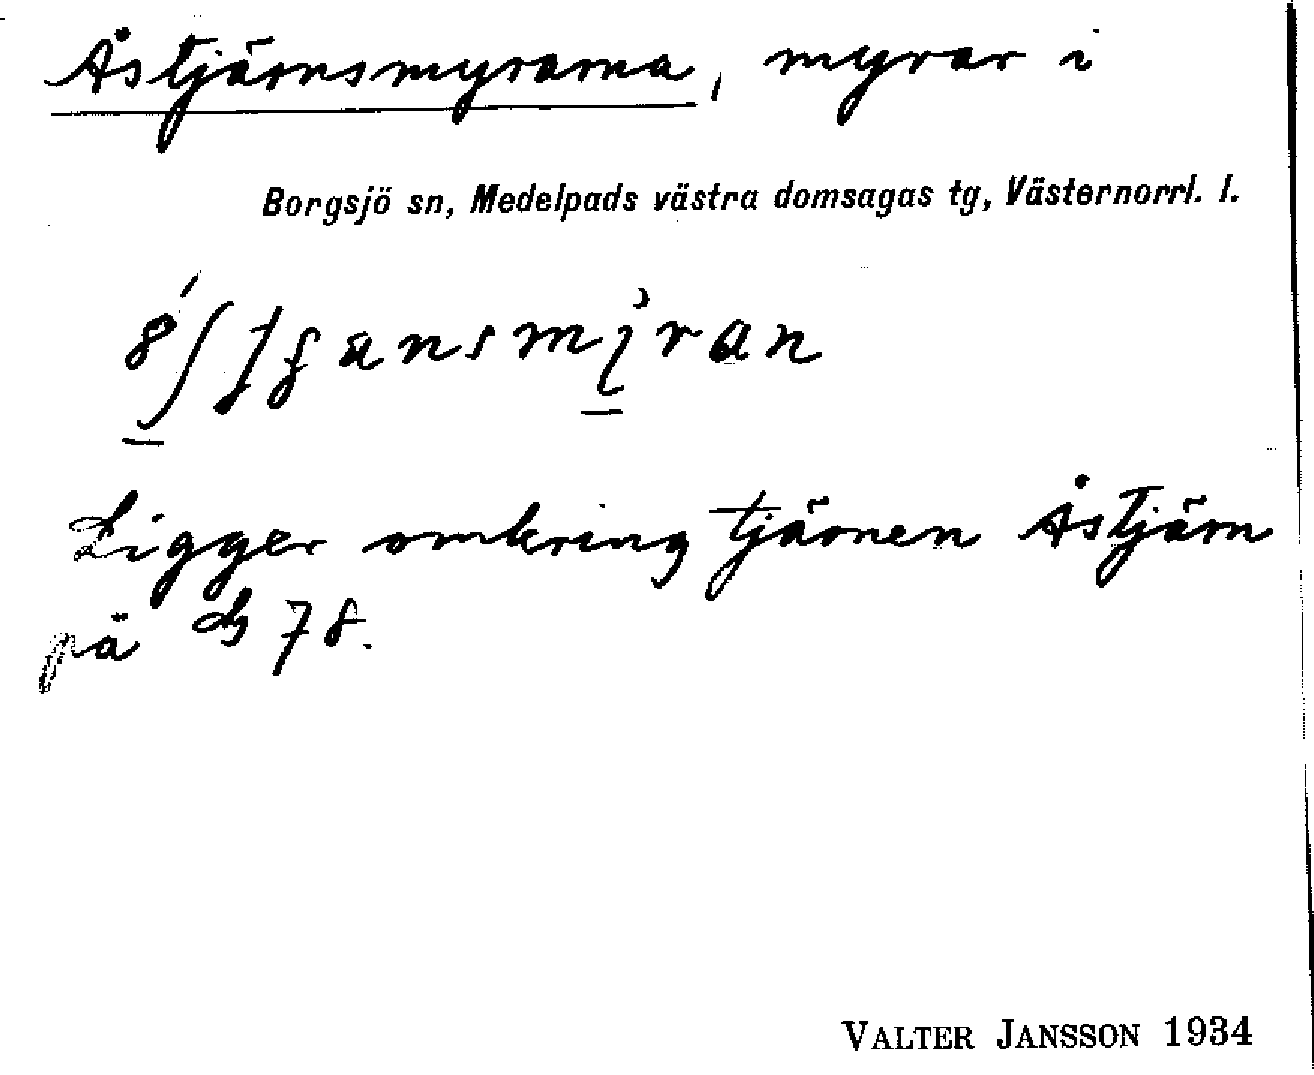 Åstjärnsmyrarna, myrar i
Borgsjö sn, Medelpads västra domsagas tg, Västernorrl. l.
Ligger omkring tjärnen Åstjärn
på 78.
VALTER JANSSON 1934